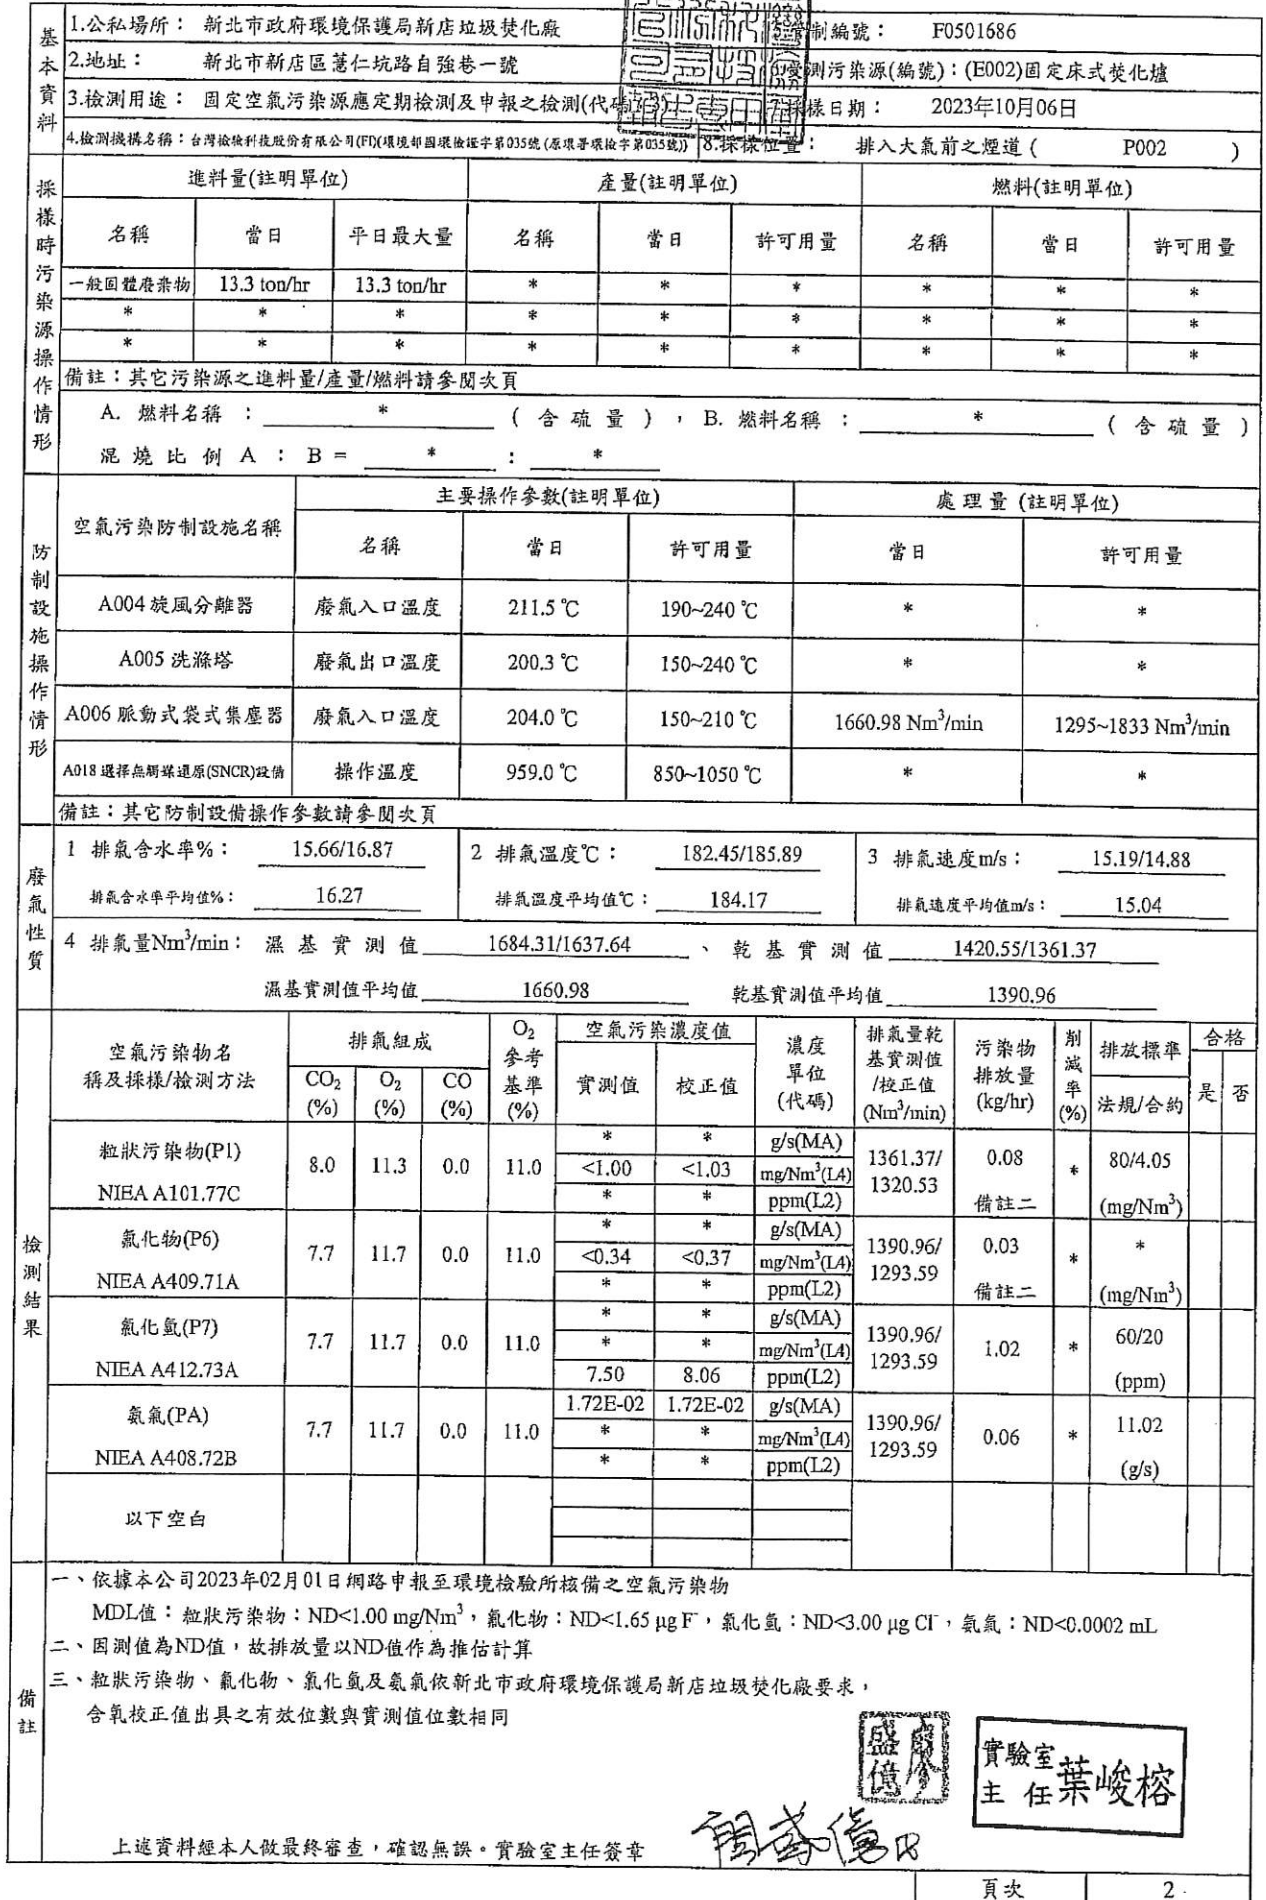 基本資料
1.公私場所： 新北市政府環境保護局新店垃圾焚化廠 制編號： F0501686
2.地址： 新北市新店區薏仁坑路自強巷一號 測污染源(編號)：(E002)固定床式焚化爐
3.檢測用途： 固定空氣污染源應定期檢測及申報之檢測(代碼 樣日期： 2023年10月06日
4.檢測機構名稱：台灣檢驗科技股份有限公司(FD(環境部國環檢證字第035號(原環署環檢字第035號)) 8.採樣位置： 排入大氣前之煙道( P002 )
採樣時污染源操作情形
進料量(註明單位) 產量(註明單位) 燃料(註明單位)
名稱 當日 平日最大量 名稱 當日 許可用量 名稱 當日 許可用量
一般固體廢棄物 13.3 ton/hr 13.3 ton/hr * * * * * *
* * * * * * * * *
* * * * * * * * *
備註：其它污染源之進料量/產量/燃料請參閱次頁
A. 燃料名稱 ： * ( 含硫量 ) ， B. 燃料名稱 ： * ( 含硫量 )
混燒比例 A ： B = * ： *
防制設施操作情形
空氣污染防制設施名稱 主要操作參數(註明單位) 處理量 (註明單位)
名稱 當日 許可用量 當日 許可用量
A004 旋風分離器 廢氣入口溫度 211.5 ℃ 190~240 ℃ * *
A005 洗滌塔 廢氣出口溫度 200.3 ℃ 150~240 ℃ * *
A006 脈動式袋式集塵器 廢氣入口溫度 204.0 ℃ 150~210 ℃ 1660.98 Nm³/min 1295~1833 Nm³/min
A018 選擇無觸媒還原(SNCR)設備 操作溫度 959.0 ℃ 850~1050 ℃ * *
備註：其它防制設備操作參數請參閱次頁
廢氣性質
1 排氣含水率%： 15.66/16.87 2 排氣溫度℃： 182.45/185.89 3 排氣速度m/s： 15.19/14.88
排氣含水率平均值%： 16.27 排氣溫度平均值℃： 184.17 排氣速度平均值m/s： 15.04
4 排氣量Nm³/min： 濕基實測值 1684.31/1637.64 、 乾基實測值 1420.55/1361.37
濕基實測值平均值 1660.98 乾基實測值平均值 1390.96
檢測結果
空氣污染物名稱及採樣/檢測方法 排氣組成 O₂參考基準(%) 空氣污染濃度值 濃度單位(代碼) 排氣量乾基實測值/校正值(Nm³/min) 污染物排放量(kg/hr) 削減率(%) 排放標準 合格
CO₂(%) O₂(%) CO(%) 實測值 校正值 法規/合約 是 否
粒狀污染物(P1) * * g/s(MA)
8.0 11.3 0.0 11.0 <1.00 <1.03 mg/Nm³(L4) 1361.37/1320.53 0.08 * 80/4.05
NIEA A101.77C * * ppm(L2) 備註二 (mg/Nm³)
氟化物(P6) * * g/s(MA)
7.7 11.7 0.0 11.0 <0.34 <0.37 mg/Nm³(L4) 1390.96/1293.59 0.03 * *
NIEA A409.71A * * ppm(L2) 備註二 (mg/Nm³)
氯化氫(P7) * * g/s(MA)
7.7 11.7 0.0 11.0 * * mg/Nm³(L4) 1390.96/1293.59 1.02 * 60/20
NIEA A412.73A 7.50 8.06 ppm(L2) (ppm)
氨氣(PA) 1.72E-02 1.72E-02 g/s(MA)
7.7 11.7 0.0 11.0 * * mg/Nm³(L4) 1390.96/1293.59 0.06 * 11.02
NIEA A408.72B * * ppm(L2) (g/s)
以下空白
備註
一、依據本公司2023年02月01日網路申報至環境檢驗所核備之空氣污染物
MDL值：粒狀污染物：ND<1.00 mg/Nm³，氟化物：ND<1.65 μg F⁻，氯化氫：ND<3.00 μg Cl⁻，氨氣：ND<0.0002 mL
二、因測值為ND值，故排放量以ND值作為推估計算
三、粒狀污染物、氟化物、氯化氫及氨氣依新北市政府環境保護局新店垃圾焚化廠要求，
含氧校正值出具之有效位數與實測值位數相同
實驗室主任葉峻榕
上述資料經本人做最終審查，確認無誤。實驗室主任簽章
頁次 2